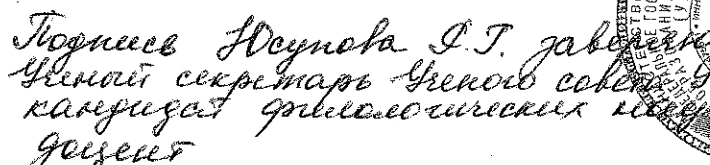 Подпись Юсупова Я.Г. заверяю
Ученый секретарь Ученого совета
кандидат филологических наук
доцент